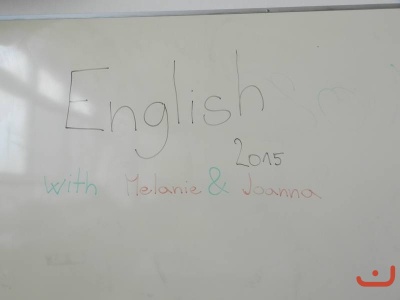 English
2015
with Melanie & Joanna